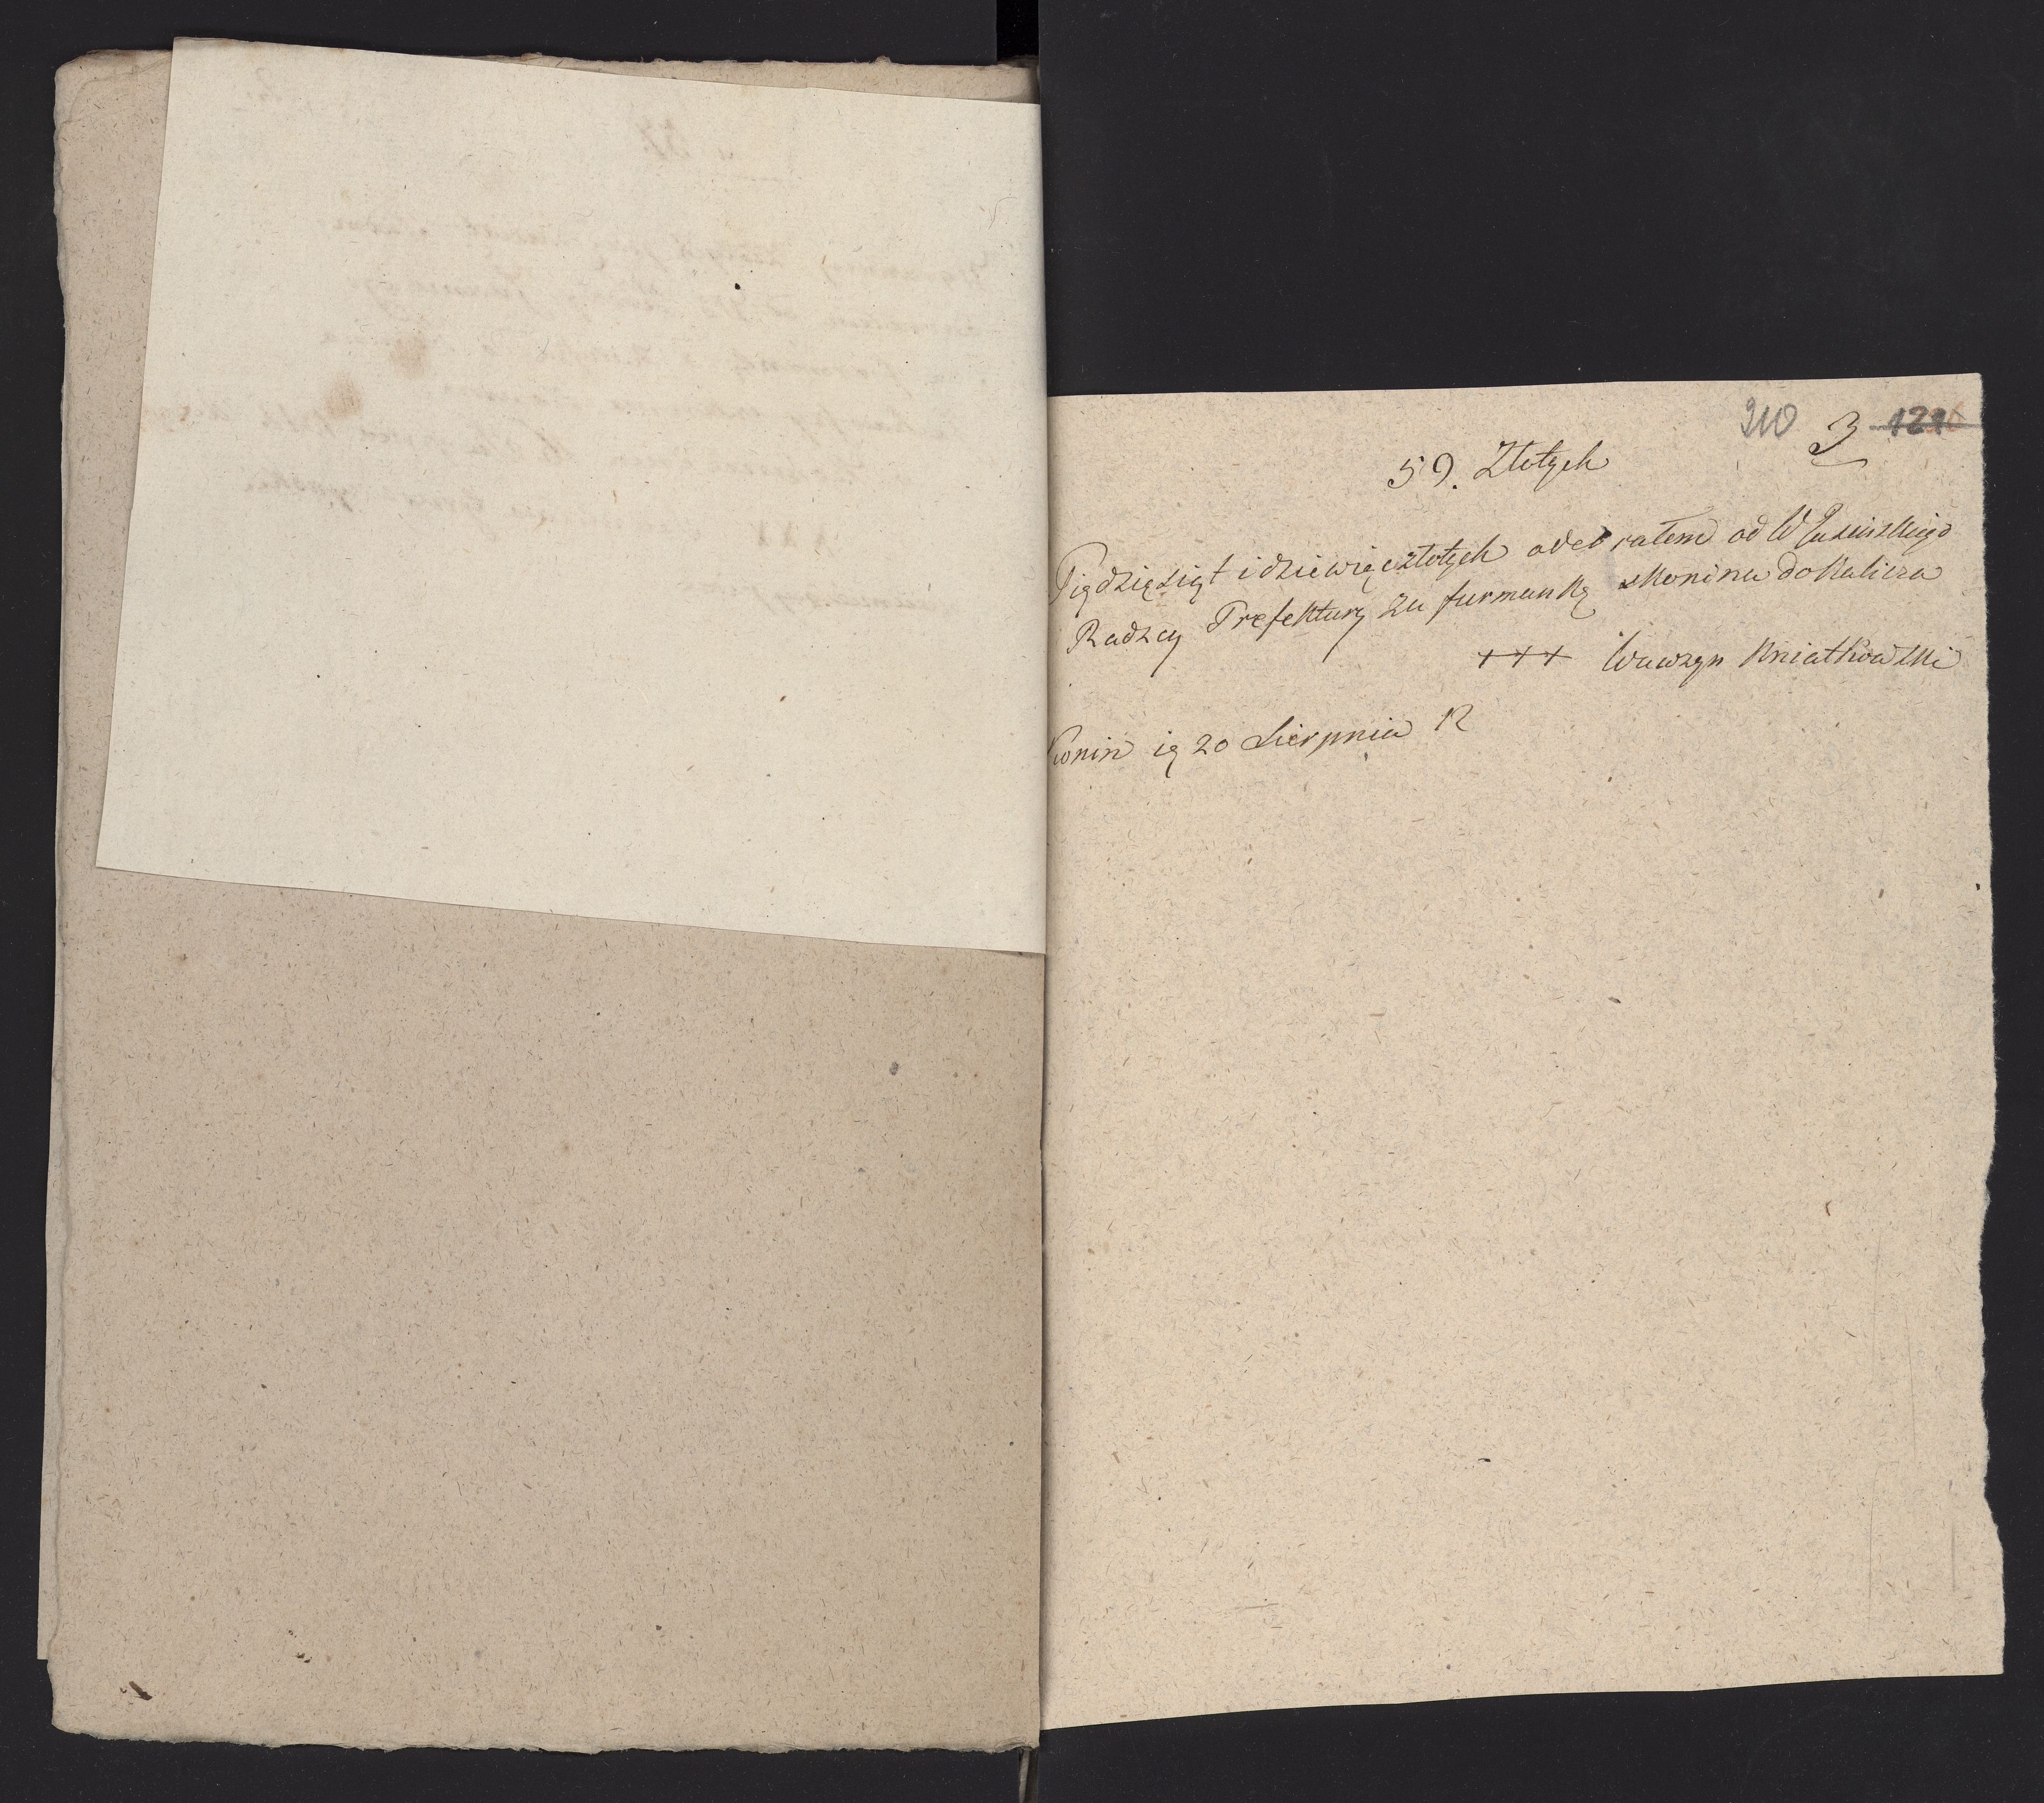 210 3 121
59. Złotych
Piędziesiąt i dziewięć złotych odebrałem od W
Radzcy Prefektury za furmankę z Konina do Kalisza
+++ Wawrzyn Kniatkowski
Konin ię 20 Sierpnia 12